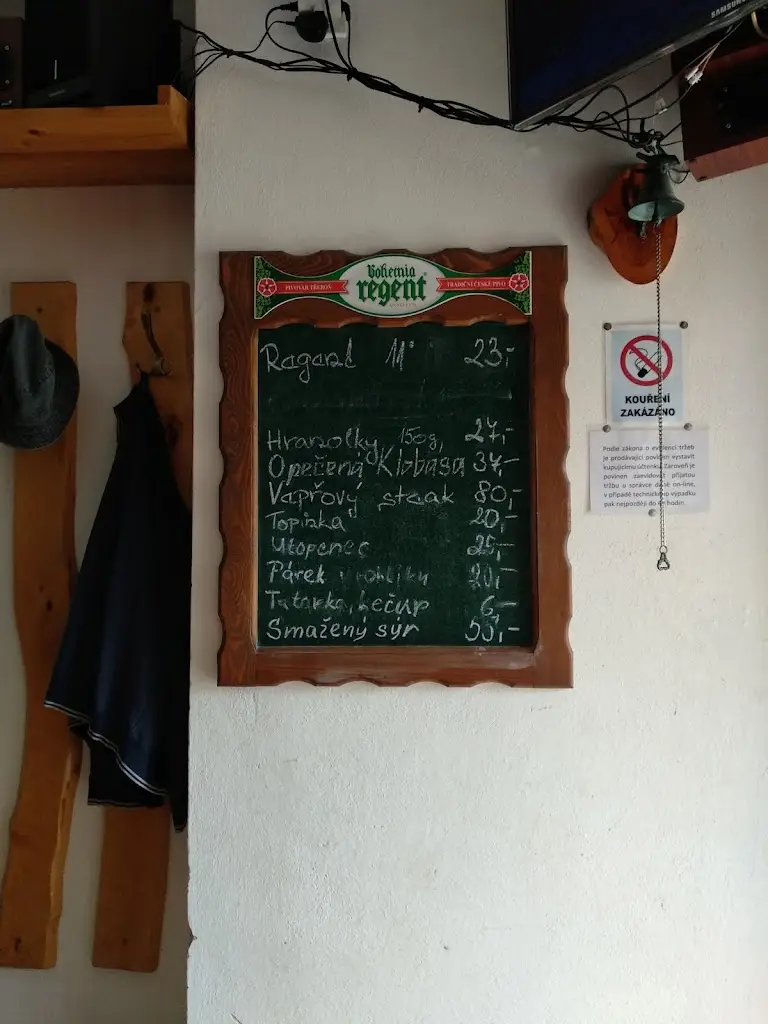 SAMSUNG
Bohemia
regent
PIVOVAR TŘEBOŇ
TRADIČNÍ ČESKÉ PIVO
Regent 11° 23,-
Hranolky 150g, 27,-
Opečená Klobása 37,-
Vapřový steak 80,-
Topinka 20,-
Utopenec 25,-
Párek v rohlíku 20,-
Tatarka, kečup 6,-
Smažený sýr 55,-
KOUŘENÍ
ZAKÁZÁNO
Podle zákona o evidenci tržeb
je prodávající povinen vystavit
kupujícímu účtenku. Zároveň je
povinen zaevidovat přijatou
tržbu u správce daně on-line,
v případě technického výpadku
pak nejpozději do 48 hodin.